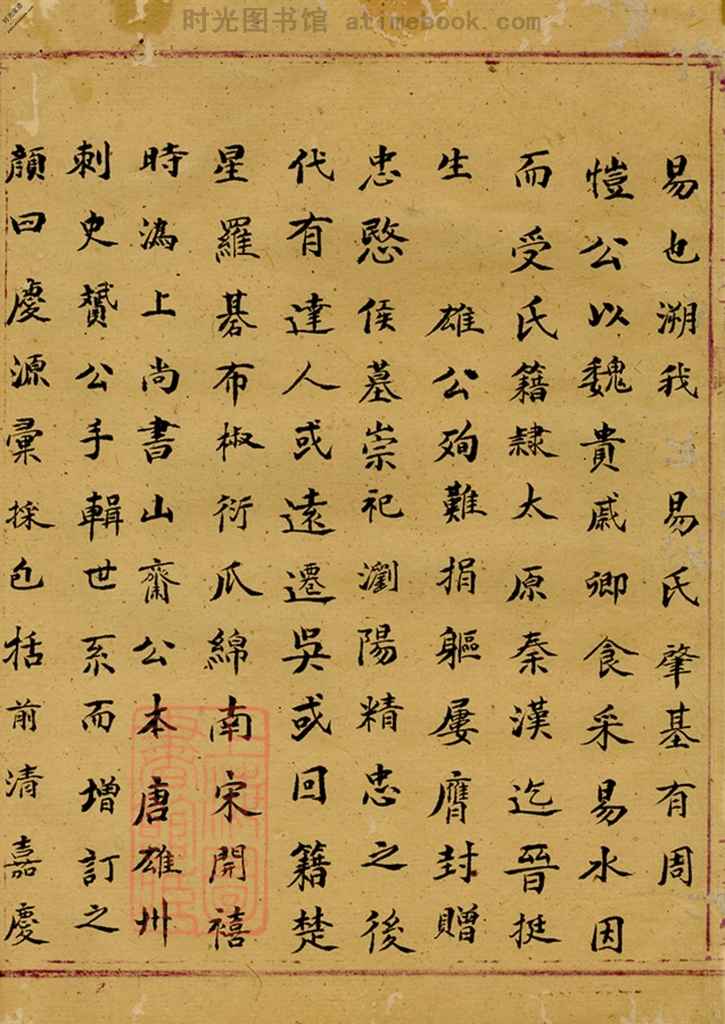 时光图书馆 atimebook.com
易也溯我 易氏肇基有周
愷公以魏貴戚卿食采易水因
而受氏籍隸太原秦漢迄晉挺
生 雄公殉難捐軀屢膺封贈
忠愍侯墓崇祀瀏陽精忠之後
代有達人或遠遷吳或回籍楚
星羅碁布椒衍瓜綿南宋開禧
時溈上尚書山齋公本唐雄州
刺史贇公手輯世系而增訂之
顏曰慶源彙採包括前清嘉慶